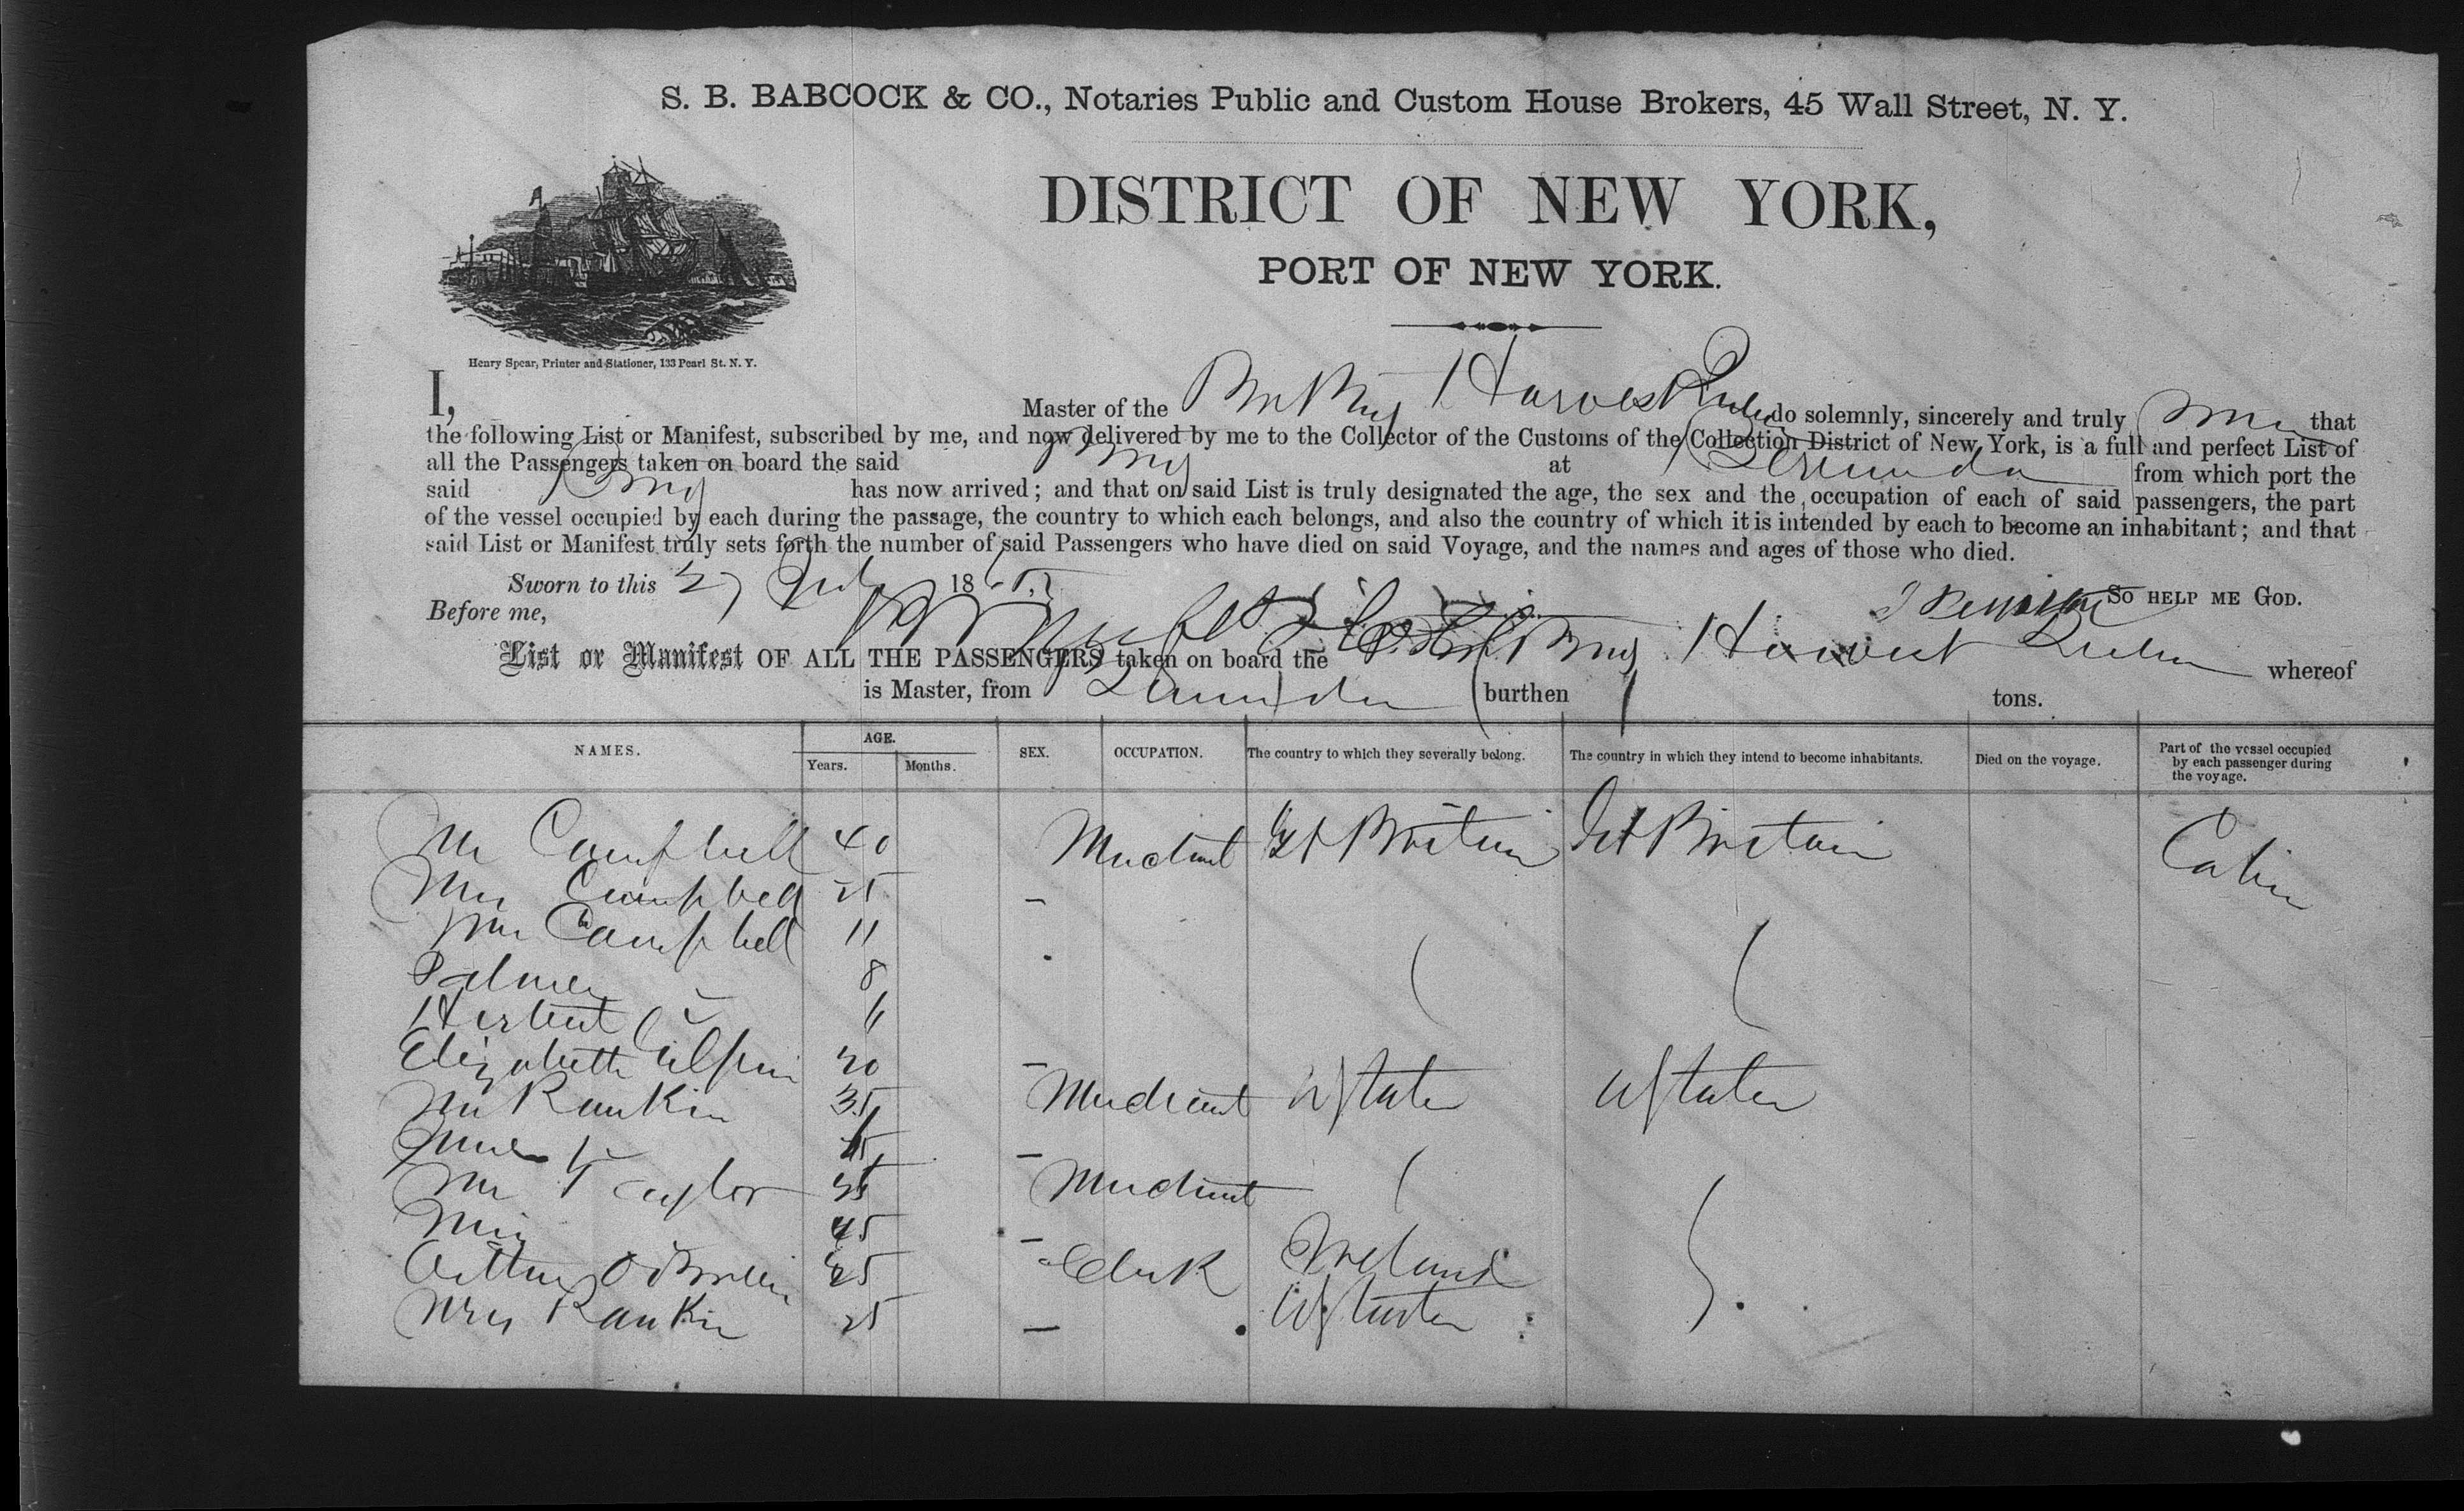 S. B. BABCOCK & CO., Notaries Public and Custom House Brokers, 45 Wall Street, N. Y.
DISTRICT OF NEW YORK,
PORT OF NEW YORK.
Henry Spear, Printer and Stationer, 133 Pearl St. N. Y.
I, Master of the Br Brig Harvest Queen do solemnly, sincerely and truly that
the following List or Manifest, subscribed by me, and now delivered by me to the Collector of the Customs of the Collection District of New York, is a full and perfect List of
all the Passengers taken on board the said Brig at Bermuda from which port the
said Brig has now arrived; and that on said List is truly designated the age, the sex and the occupation of each of said passengers, the part
of the vessel occupied by each during the passage, the country to which each belongs, and also the country of which it is intended by each to become an inhabitant; and that
said List or Manifest truly sets forth the number of said Passengers who have died on said Voyage, and the names and ages of those who died.
Sworn to this 27 July 1865 So HELP ME GOD.
Before me,
List or Manifest OF ALL THE PASSENGERS taken on board the Brig Harvest Queen whereof
is Master, from Bermuda burthen tons.
NAMES. AGE. Years. Months. SEX. OCCUPATION. The country to which they severally belong. The country in which they intend to become inhabitants. Died on the voyage. Part of the vessel occupied by each passenger during the voyage.
Mr Campbell 40 Merchant Gt Britain Gt Britain Cabin
Mrs Campbell 25 —
Wm Campbell 11
Palmer 8
Herbert 6
Elizabeth 20 —
Mr Rankin 35 Merchant U States U States
—
Mr Taylor Merchant
45 —
Arthur O'Brien 25 Clerk Ireland
Mrs Rankin 25 — U States